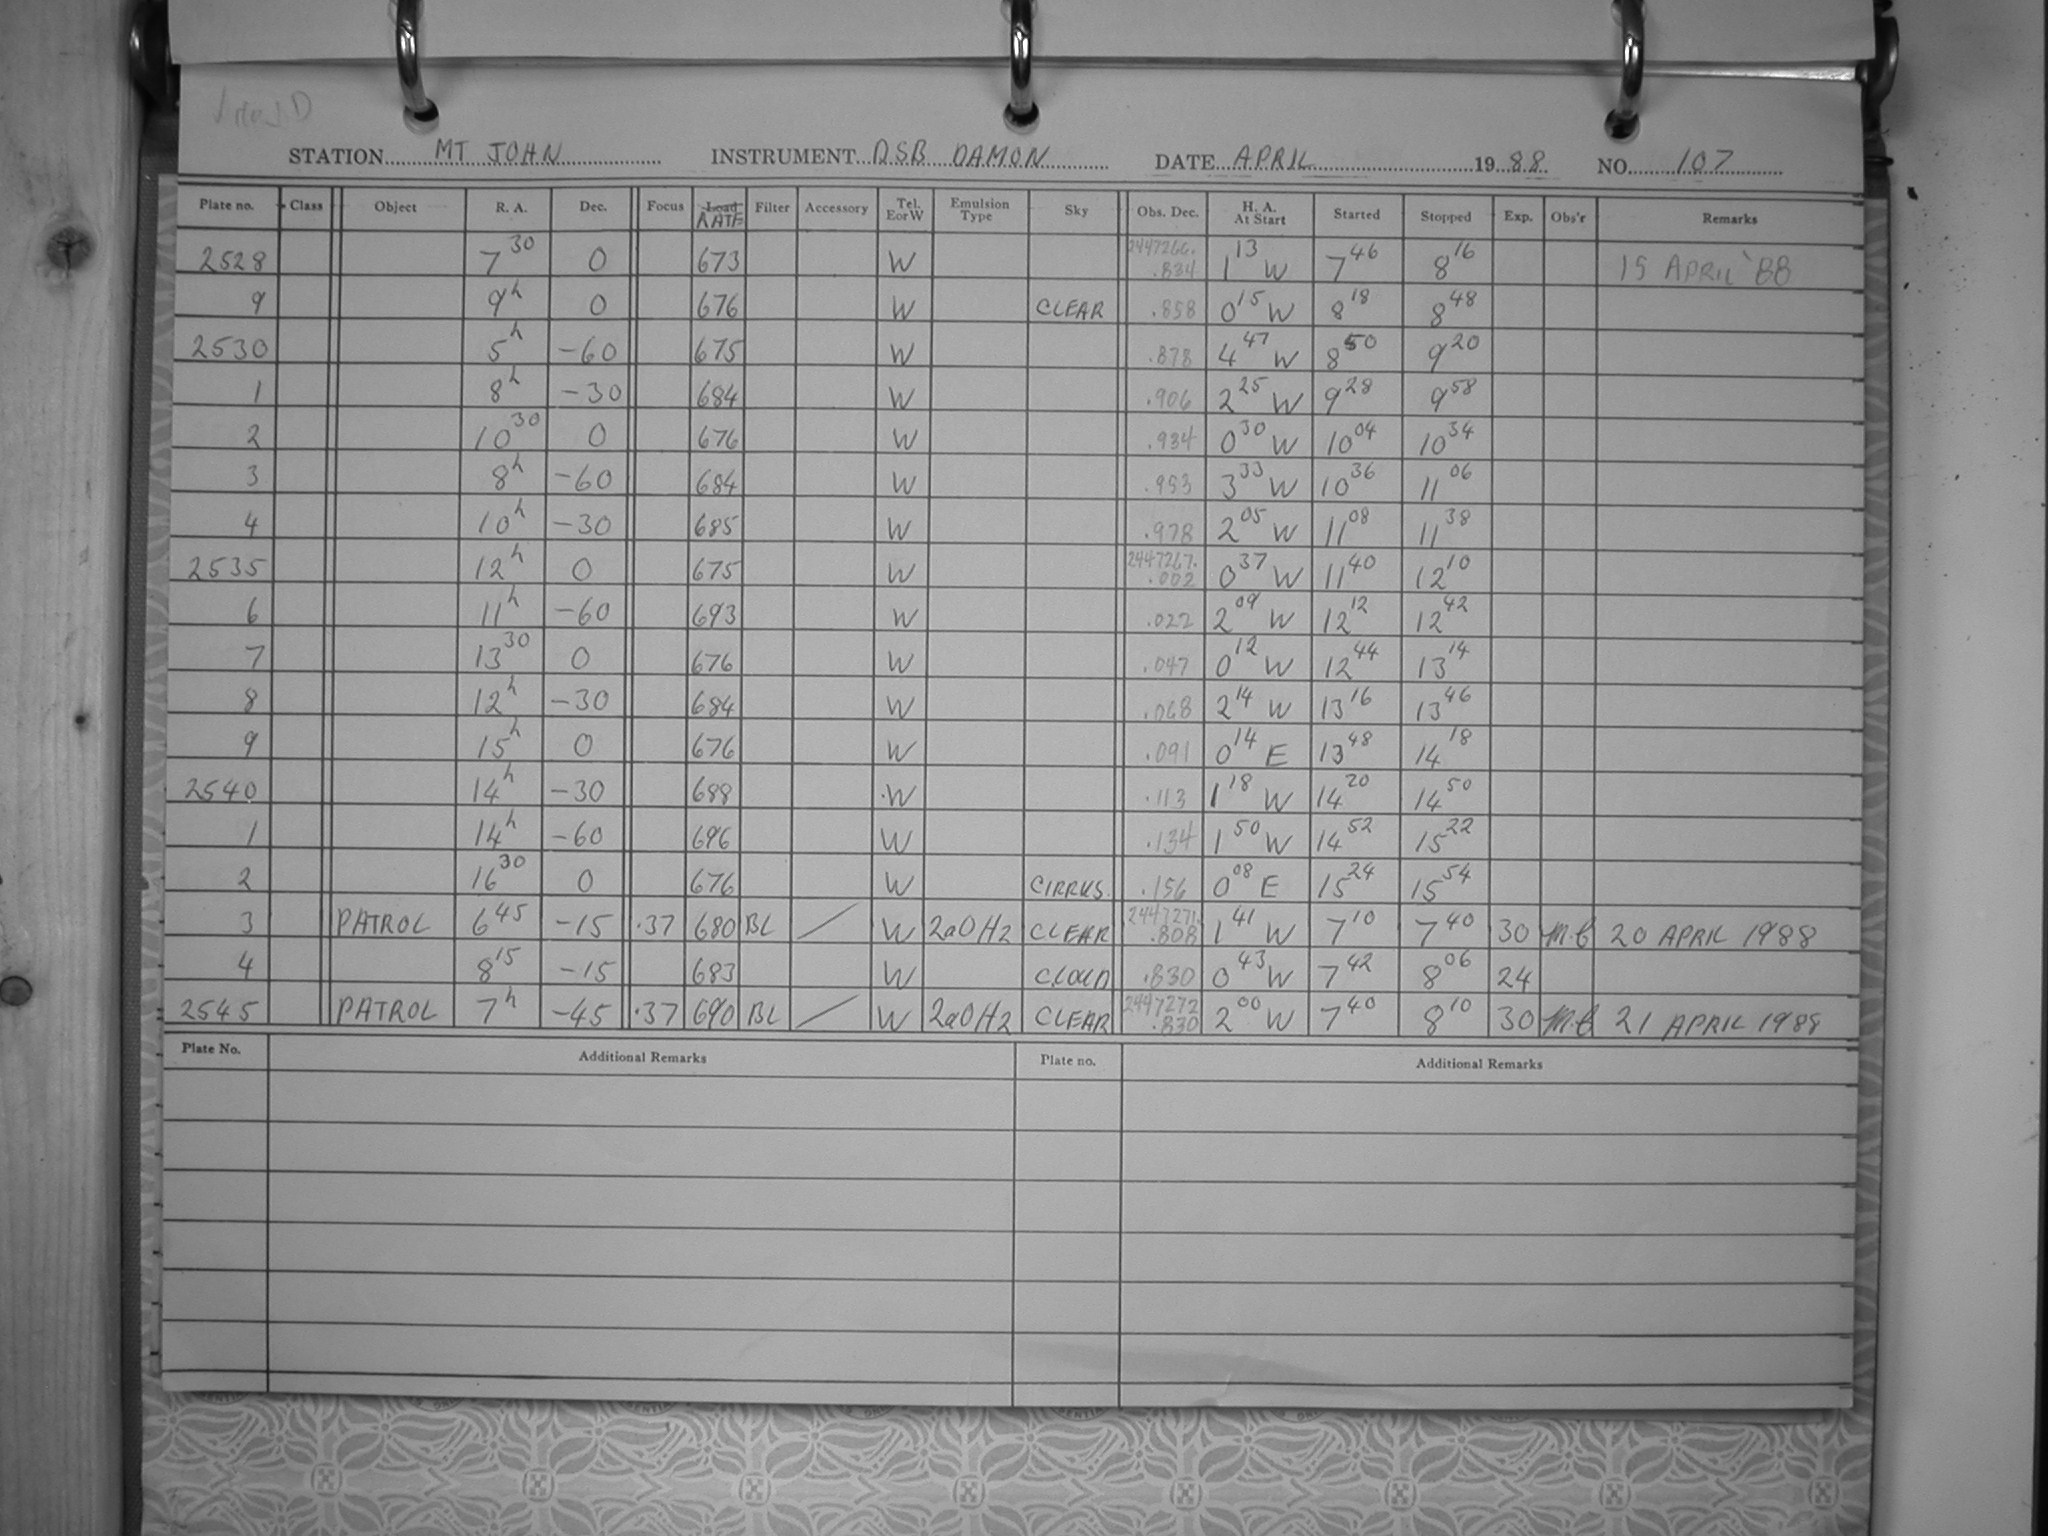 STATION MT JOHN INSTRUMENT DSB DAMON DATE APRIL 1988 NO. 107
Plate no. Class Object R. A. Dec. Focus Load RATE Filter Accessory Tel. E or W Emulsion Type Sky Obs. Dec. H. A. At Start Started Stopped Exp. Obs'r Remarks
2528 7 30 0 673 W 2447266. .834 1 13 W 7 46 8 16 15 APRIL '88
9 9h 0 676 W CLEAR .858 0 15 W 8 18 8 48
2530 5h -60 675 W .878 4 47 W 8 50 9 20
1 8h -30 684 W .906 2 25 W 9 28 9 58
2 10 30 0 676 W .934 0 30 W 10 04 10 34
3 8h -60 684 W .953 3 33 W 10 36 11 06
4 10h -30 685 W .978 2 05 W 11 08 11 38
2535 12h 0 675 W 2447267. .002 0 37 W 11 40 12 10
6 11h -60 693 W .022 2 09 W 12 12 12 42
7 13 30 0 676 W .047 0 12 W 12 44 13 14
8 12h -30 684 W .068 2 14 W 13 16 13 46
9 15h 0 676 W .091 0 14 E 13 48 14 18
2540 14h -30 688 W .113 1 18 W 14 20 14 50
1 14h -60 696 W .134 1 50 W 14 52 15 22
2 16 30 0 676 W CIRRUS. .156 0 08 E 15 24 15 54
3 PATROL 6 45 -15 .37 680 BL / W 2aOH2 CLEAR 2447271. .808 1 41 W 7 10 7 40 30 20 APRIL 1988
4 8 15 -15 683 W CLOUD .830 0 43 W 7 42 8 06 24
2545 PATROL 7h -45 .37 690 BL / W 2aOH2 CLEAR 2447272 .830 2 00 W 7 40 8 10 30 21 APRIL 1988
Plate No. Additional Remarks Plate no. Additional Remarks